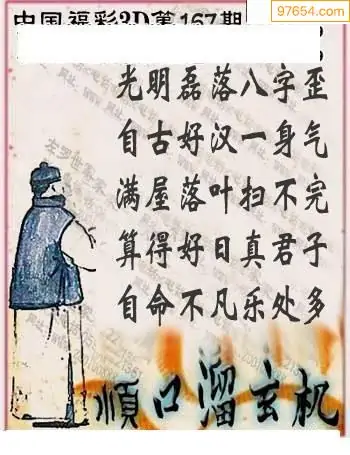 97654.com
中国福彩3D第167期
光明磊落八字歪
自古好汉一身气
满屋落叶扫不完
算得好日真君子
自命不凡乐处多
順口溜玄机